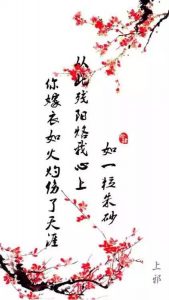 你嫁衣如火灼伤了天涯
从此残阳烙我心上
如一粒朱砂
上邪